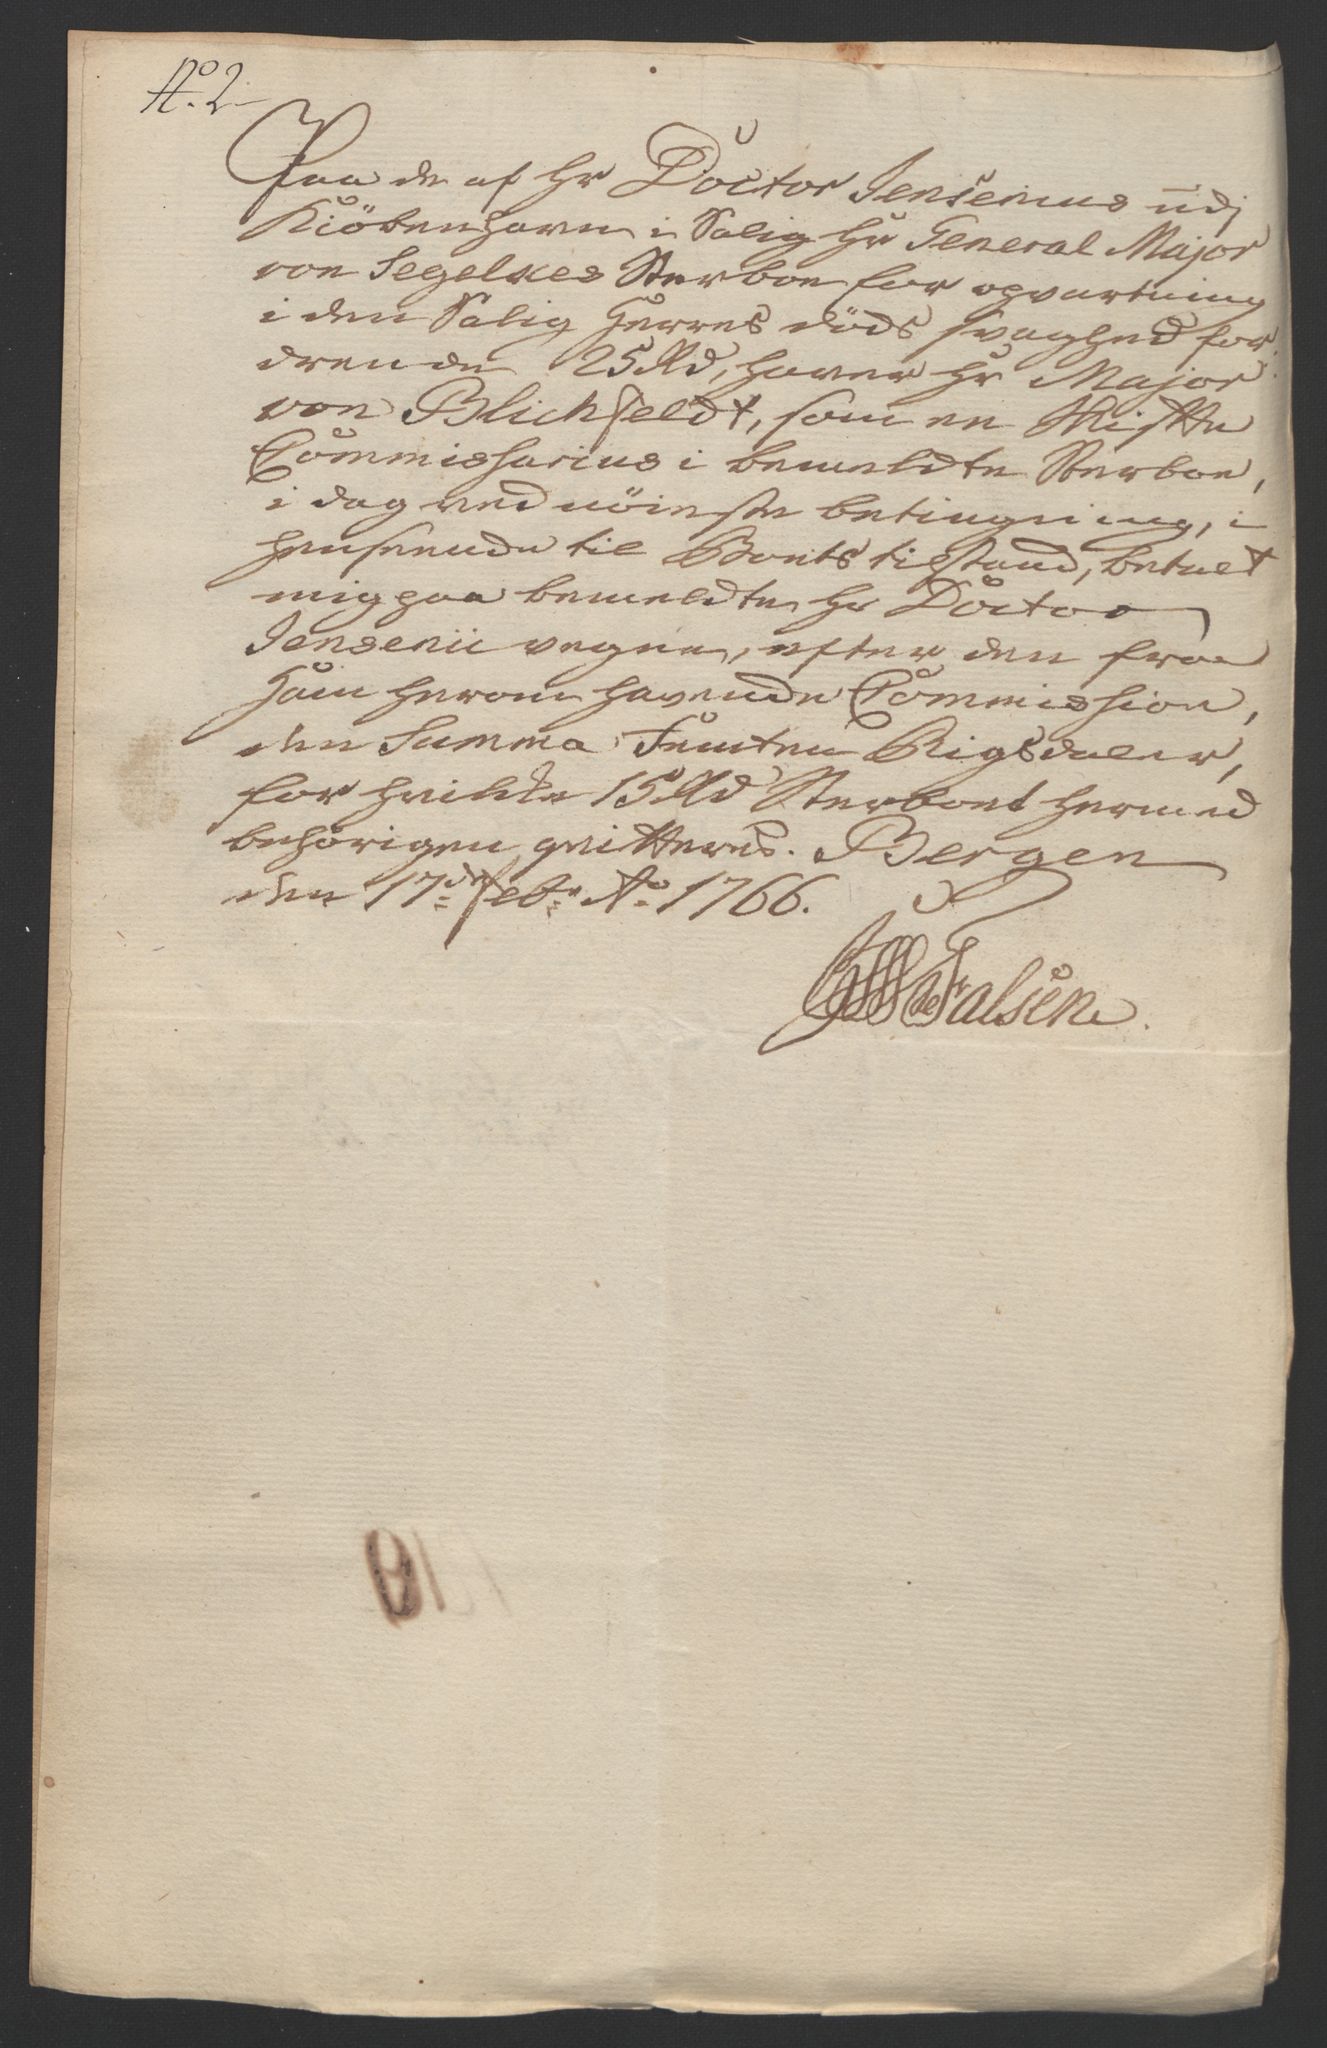 No. 2
Paa de af Hr Doctor Jensenius udj
Kiöbenhavn i Salig Hr General Major
von Segelkes Sterboe for opvartning
i den Salig Herres döds svaghed for-
drende 25 Rd, haver Hr Major
von Blichfeldt, som en Skifte
Commissarius i bemeldte Sterboe,
i dag ved nöieste betingning, i
henseende til Boets tilstand, betalt
mig paa bemeldte Hr Doctor
Jensenii vegne, efter den fra
Ham herom havende Commission,
den Summa Femten Rigsdaler,
for hvilke 15 Rd Sterboet hermed
behörigen qvitteres. Bergen
den 17de Febr. Ao 1766.
de Falsen